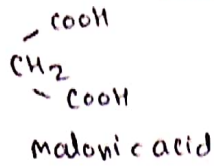 COOH
CH2
COOH
malonic acid